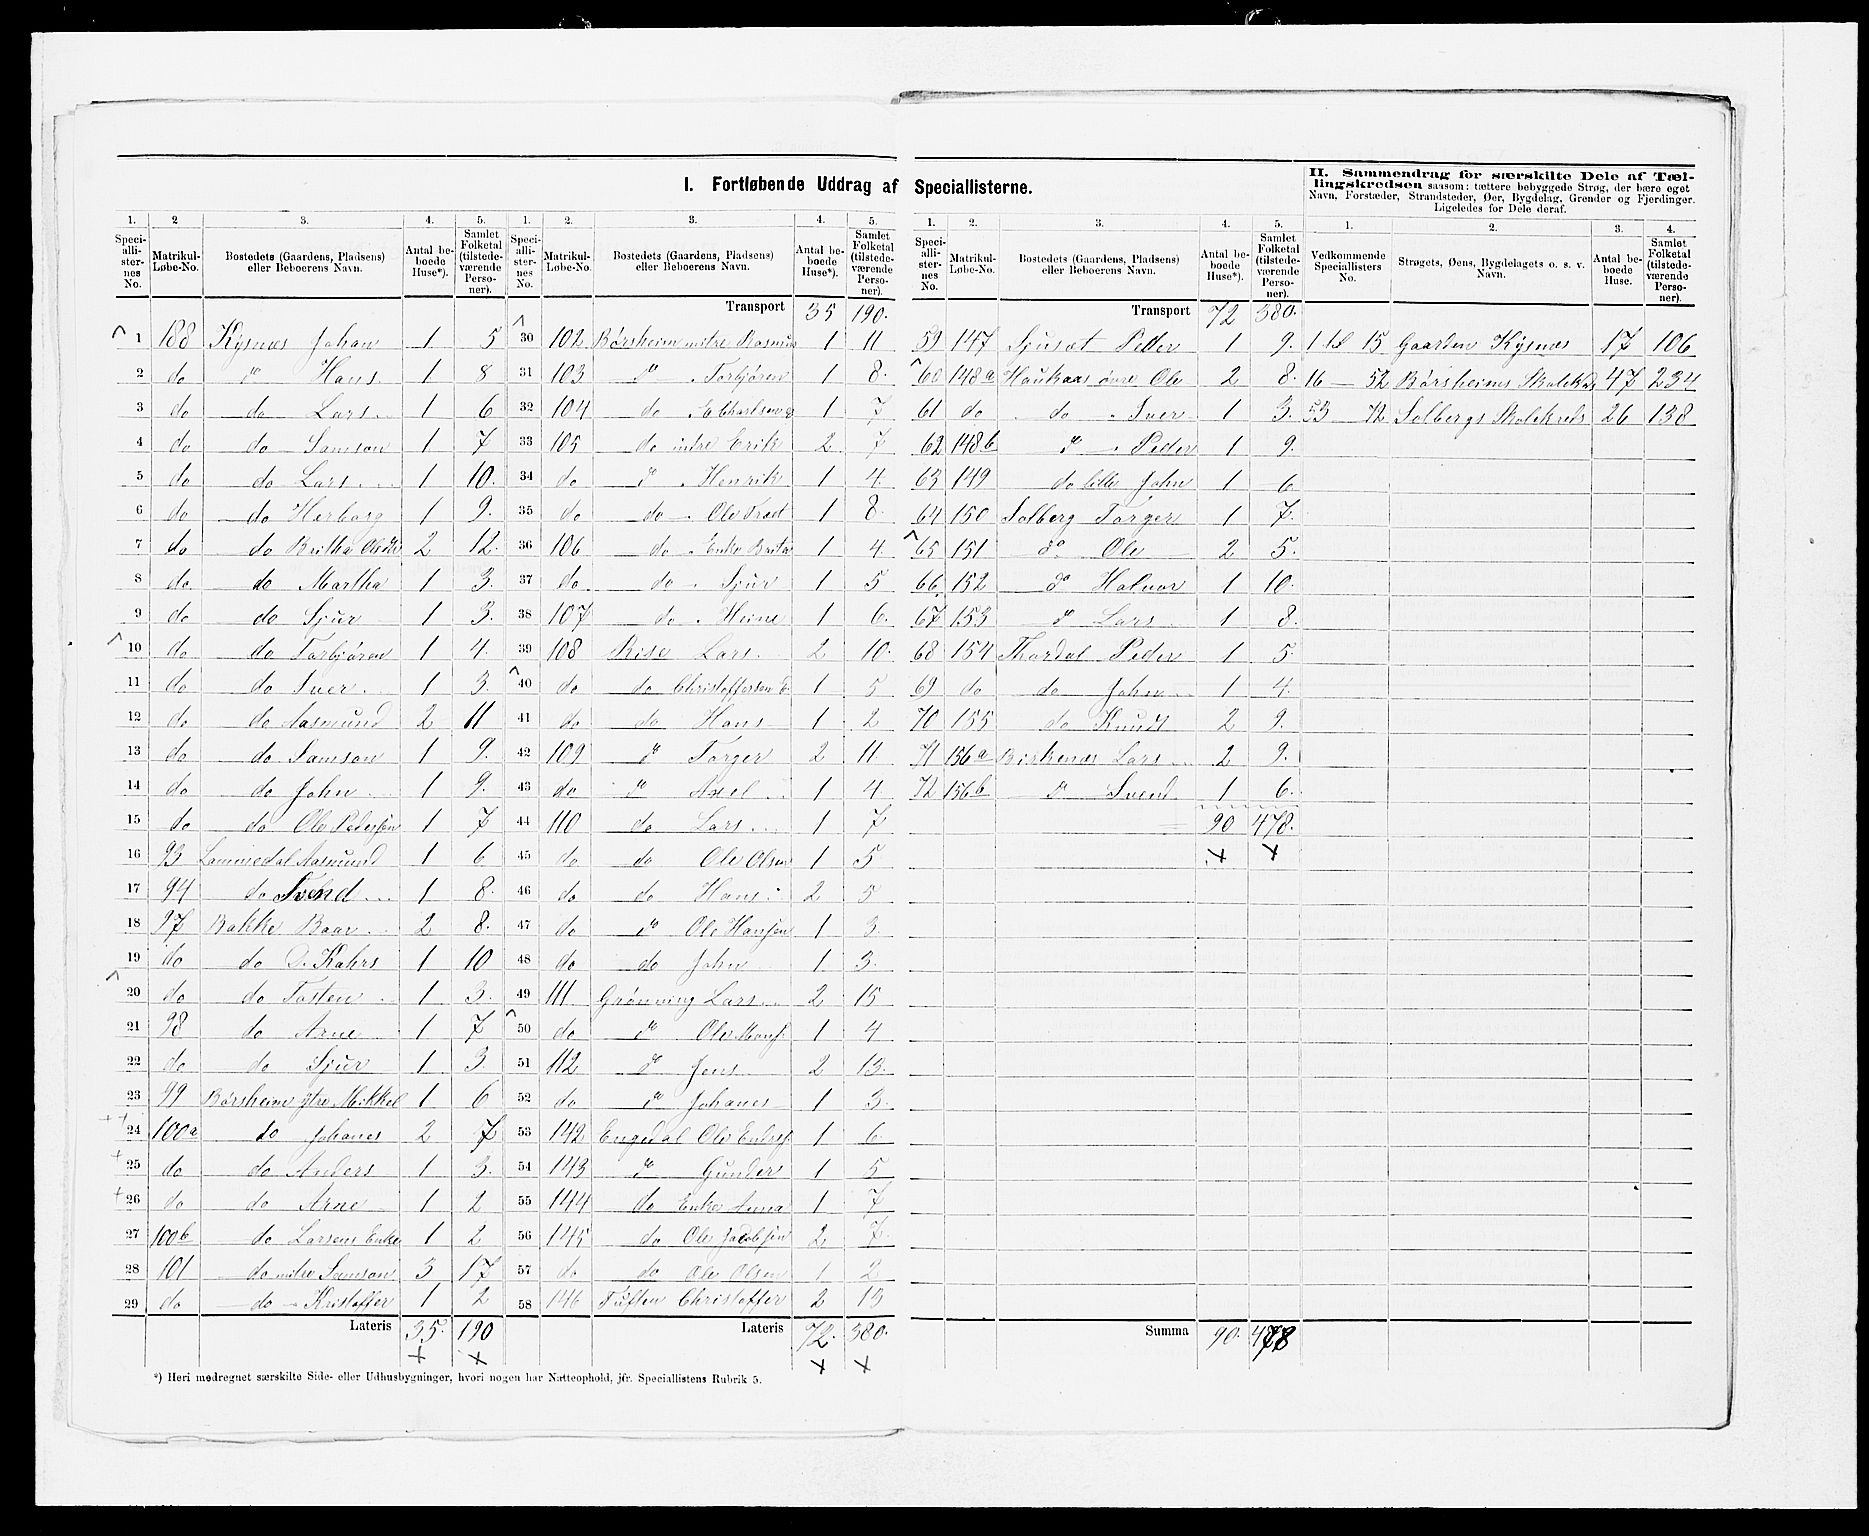 I. Fortløbende Uddrag af Speciallisterne.
II. Sammendrag for særskilte Dele af Tæl-
lingskredsen saasom: tættere bebyggede Strøg, der bære eget
Navn, Forstæder, Strandsteder, Øer, Bygdelag, Grender og Fjerdinger.
Ligeledes for Dele deraf.
1. 2 3. 4. 5.
Speci-alli-ster-nes No. Matrikul-Løbe-No. Bostedets (Gaardens, Pladsens) eller Beboerens Navn. Antal be-boede Huse*). Samlet Folketal (tilstede-værende Perso-ner).
1 188 Kysnæs Johan 1 5
2 do do Hans 1 8
3 do do Lars 1 6
4 do do Samson 1 7
5 do do Lars 1 10.
6 do do Herborg 1 9.
7 do do Britha 2 12.
8 do do Martha 1 3.
9 do do Sjur 1 3.
10 do do Torbjøren 1 4.
11 do do Iver 1 3.
12 do do Aasmund 2 11
13 do do Samson 1 9.
14 do do John 1 9.
15 do do Ole Pedersen 1 7
16 93 Lammedal Aasmund 1 6
17 94 do Svend 1 8.
18 97 Bakke Baar 2 8.
19 do do D. Kahrs 1 10
20 do do Tosten 1 3.
21 98 do Arne 1 7
22 do do Sjur 1 3
23 99 Børsheim ytre Mikkel 1 6
24 100a do Johanes 2 7
25 do do Anders 1 3.
26 do do Arne 1 2
27 100b do Larsens Enke 1 2
28 101 do mitre Samson 3 17
29 do do Kristoffer 1 2
Lateris 35. 190
*) Heri medregnet særskilte Side- eller Udhusbygninger, hvori nogen har Natteophold, jfr. Speciallistens Rubrik 5.
1. 2. 3. 4. 5.
Speci-alli-ster-nes No. Matrikul-Løbe-No. Bostedets (Gaardens, Pladsens) eller Beboerens Navn. Antal be-boede Huse*). Samlet Folketal (tilstede-værende Perso-ner).
Transport 35 190.
30 102 Børsheim mitre Rasmus 1 11
31 103 do Torbjøren 1 8.
32 104 do 1 7
33 105 do indre Erik 2 7
34 do do Henrik 1 4.
35 do do Ole 1 8.
36 106 do Enke Brita 1 4
37 do. do Sjur 1 5
38 107 do Heine 1 6.
39 108 Rise Lars. 2 10.
40 do do Christoffersen 1 5
41 do do Hans 1 2
42 109 do Torger 2 11
43 do do Axel 1 4
44 110 do Lars 1 7
45 do do Ole Olsen 1 5
46 do do Hans 2 5
47 do do Ole Hansen 1 3
48 do do John 1 3.
49 111. Grønning Lars 2 15
50 do do Ole 1 4
51 112 do Jens 2 13.
52 do do Johanes 1 3.
53 142 Engedal Ole 1 6
54 143 do Gunder 1 5
55 144 do Enke Anna 1 7
56 145 do Ole Jacobsen 2 7.
57 do do Ole Olsen 1 2
58 146 Tuften Christoffer 2 13
Lateris 72. 380.
1. 2. 3. 4. 5.
Speci-alli-ster-nes No. Matrikul-Løbe-No. Bostedets (Gaardens, Pladsens) eller Beboerens Navn. Antal be-boede Huse*). Samlet Folketal (tilstede-værende Perso-ner).
Transport 72 380.
59 147 Sjusæt Peder 1 9.
60 148a Haukaas øvre Ole 2 8.
61 do do Iver 1 3.
62 148b do Peder 1 9.
63 149 do lille John 1 6
64 150 Solberg Torger 1 7.
65 151 do Ole 2 5.
66 152 do Halvor 1 10.
67 153 do Lars 1 8.
68 154 Thordal Peder 1 5.
69 do do John 1 4.
70 155 do Knudt 2 9.
71 156a Birkenæs Lars 2 9.
72 156b do Svend 1 6.
90 478.
Summa 90. 478
1. 2. 3. 4.
Vedkommende Speciallisters No. Strøgets, Øens, Bygdelagets o. s. v. Navn. Antal be-boede Huse. Samlet Folketal (tilstede-værende Perso-ner).
1 til 15 Gaarden Kysnæs 17 106
16 — 52 Børsheims Skolekreds 47 234
53 — 72 Solbergs Skolekreds 26 138